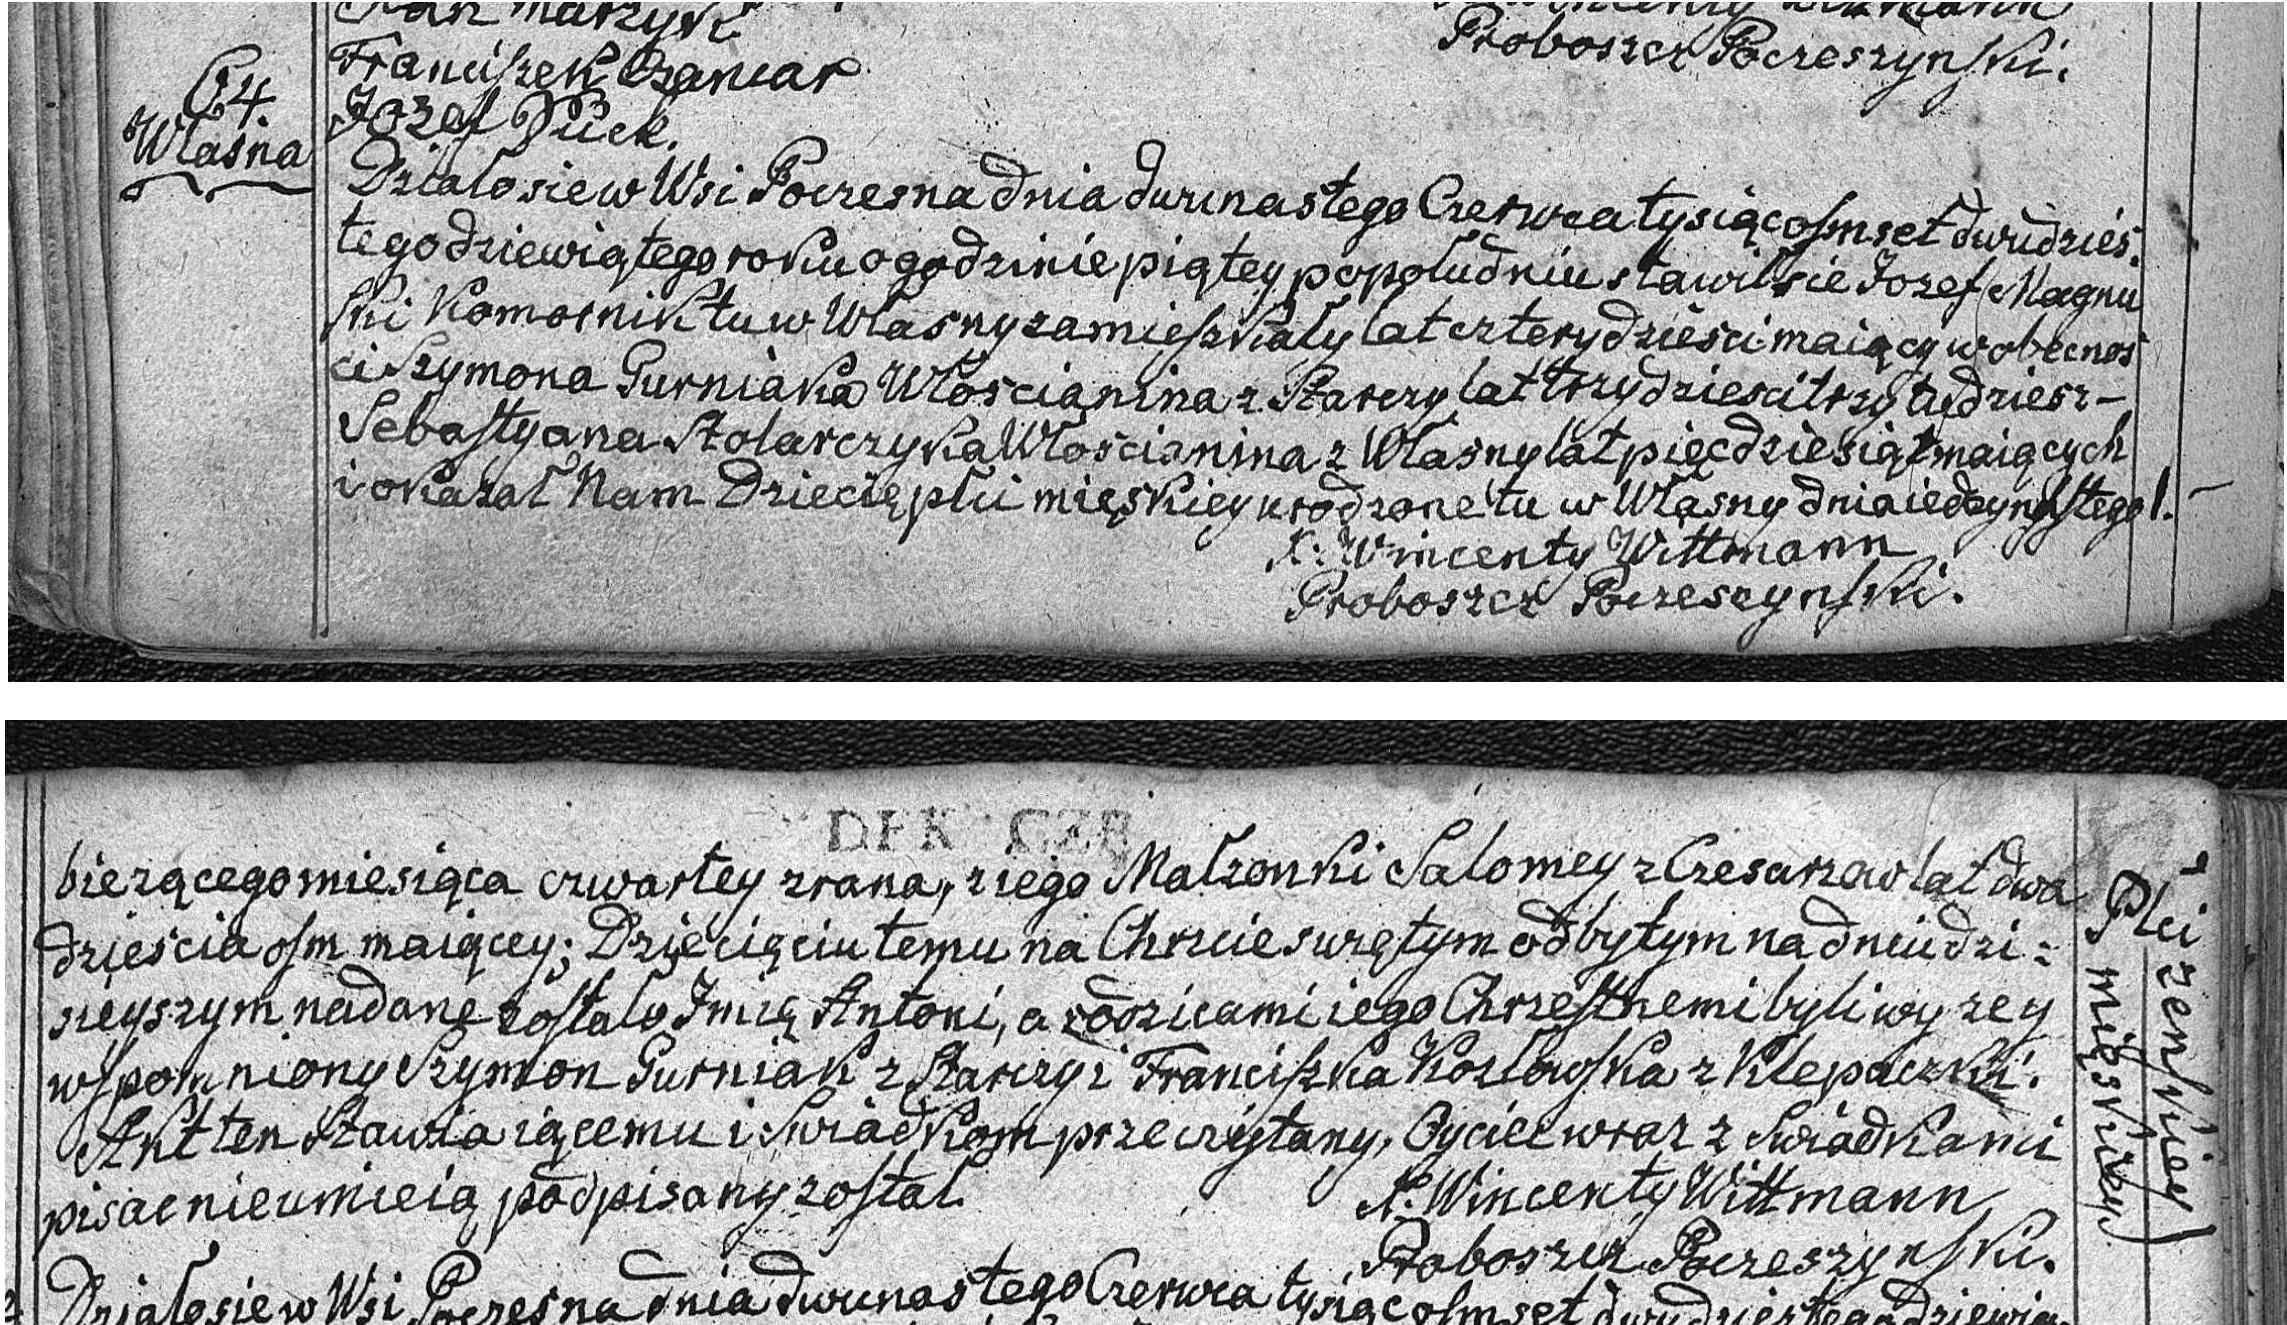 Jan Marzyk
Wincenty Wittmann
Proboszcz Poczeszynski.
Franciszek
Jozef
64.
Własna
Działo sie w Wsi Poczesna dnia dwunastego Czerwca tysiąc ośmset dwudzies
tego dziewiątego roku o godzinie piątey popołudniu stawił sie Jozef Magnu
ski Komornik tu w Własny zamieszkały lat cztery dzieści maiący w obecnos
ci Szymona Gurniaka Włościanina z Starczy lat trzydzieści trzy tudziesz-
Sebastyana Stolarczyka Włościanina z Własny lat pięcdziesiąt maiących
i okazał Nam Dziecię płci mięskiey urodzone tu w Własny dnia iedynastego
X: Wincenty Wittmann
Proboszcz Poczeszynski.
DEK CZĘ
bieżącego miesiąca czwartey zrana, z iego Małżonki Salomey z Czesarzow lat dwa
dzieścia ośm maiącey; Dziecięciu temu na Chrzcie swiętym odbytym na dniu dzi:
sieyszym nadane zostało Imię Antoni, a rodzicami iego Chrzestnemi byli wyzey
wspomniony Szymon Gurniak z Starczy i Franciszka Kozłowska z Klepaczki.
Akt ten Stawiaiącemu i Swiadkom przeczytany, Oyciec wraz z Swiadkami
pisac nie umieią podpisany został
X: Wincenty Wittmann
Proboszcz Poczeszynski.
Płci zenskiey
mięskiey
Działo sie w Wsi Poczesna dnia dwunastego Czerwca tysiąc ośmset dwudziestego dziewią